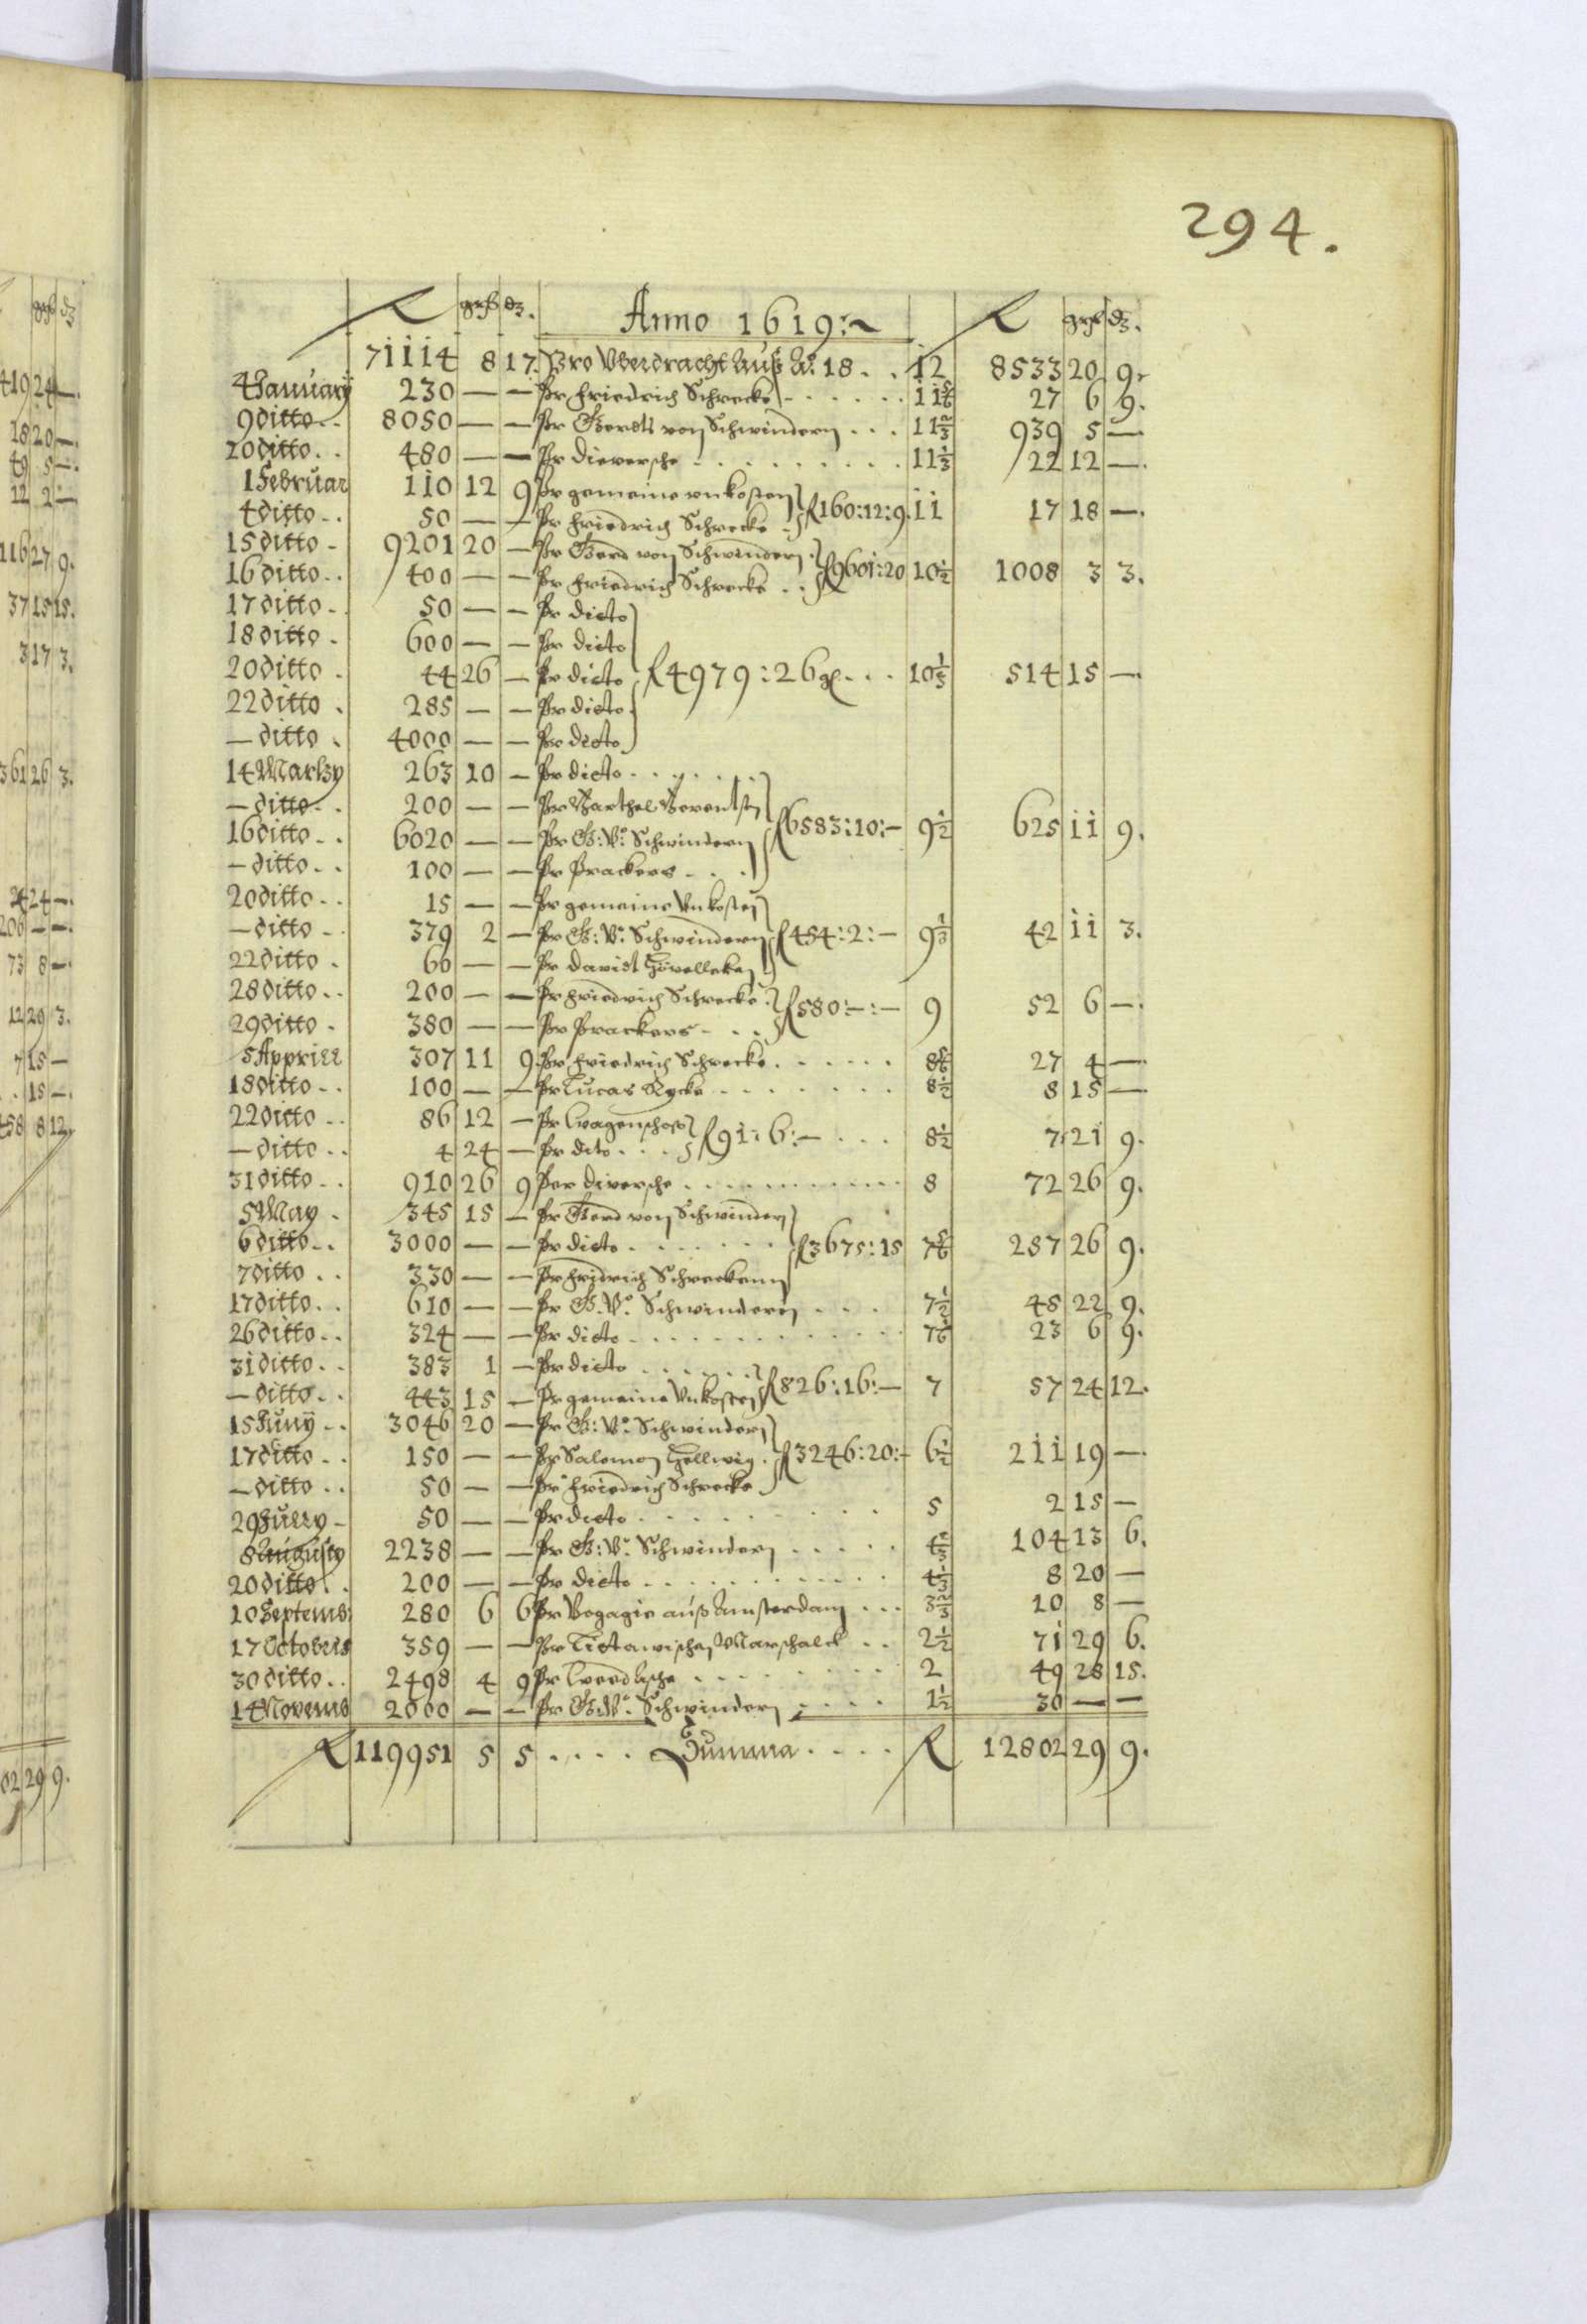 294.
R grs dz. Anno 1619:~ R grs dz.
71114 8 17. Pro Vberdracht Auß Ao: 18 . . 12 8533 20 9.
4 January 230 — — Pr friedrich Schrecke . . . . . . 11 5/6 27 6 9.
9 ditto . . 8050 — — Pr Gerdts von Schwindern . . . 11 2/3 939 5 —
20 ditto . . 480 — — Pr dieversche . . . . . . . . . 11 1/3 22 12 —.
1 Februar 110 12 9 Pr gemeine vnkosten } R 160:12:9. 11 17 18 —.
4 ditto . . 50 — — Pr friedrich Schrecke
15 ditto . 9201 20 — Pr Gerd von Schwindern } R 9601:20 10 1/2 1008 3 3.
16 ditto . . 400 — — Pr friedrich Schrecke . .
17 ditto . . 50 — — Pr dicto
18 ditto . 600 — — Pr dicto
20 ditto . 44 26 — Pr dicto } R 4979:26 gl . . . 10 1/3 514 15 —
22 ditto . 285 — — Pr dicto
— ditto . 4000 — — Pr dicto
14 Martzy 263 10 — Pr dicto . . . . . .
— ditto . . 200 — — Pr Barthel
16 ditto . . 6020 — — Pr G: Vo: Schwindern } R 6583:10:— 9 1/2 625 11 9.
— ditto . . 100 — — Pr Prackers . . .
20 ditto . . 15 — — Pr gemeine Vnkosten
— ditto . . 379 2 — Pr G: Vo: Schwindern } R 454:2:— 9 1/3 42 11 3.
22 ditto . 60 — — Pr davidt
28 ditto . . 200 — — Pr friedrich Schrecke } R 580:—:— 9 52 6 —.
29 ditto . 380 — — Pr Prackers . . .
5 Apprill 307 11 9. Pr friedrich Schrecke . . . . . . 8 5/6 27 4 —
18 ditto . . 100 — — Pr Lucas Rycke . . . . . . . 8 1/2 8 15 —
22 ditto . . 86 12 — Pr Wagenschoss } R 91:6:— . . . 8 1/2 7 21 9.
— ditto . . 4 24 — Pr dito . . .
31 ditto . . 910 26 9 Per diversche . . . . . . . . . . . 8 72 26 9.
5 May . 345 15 — Pr Gerd von Schwindern
6 ditto . . 3000 — — Pr dicto . . . . . . } R 3675:15 7 5/6 287 26 9.
7 ditto . . 330 — — Pr fridrich Schreckenn
17 ditto . . 610 — — Pr G. Vo. Schwindern . . . 7 1/2 45 22 9.
26 ditto . . 324 — — Pr dicto . . . . . . . . . . . 7 1/6 23 6 9.
31 ditto . . 383 1 — Pr dicto . . . . . . } R 826:16:— 7 57 24 12.
— ditto . . 443 15 — Pr gemeine Vnkosten
15 Juny . . 3046 20 — Pr G: Vo: Schwindern
17 ditto . . 150 — — Pr Salomon Hellwig . } R 3246:20:— 6 1/2 211 19 —
— ditto . . 50 — — Pr friedrich Schrecke
29 Jully . 50 — — Pr dicto . . . . . . . . . 5 2 15 —
8 Augusty 2238 — — Pr G: Vo: Schwindern . . . . . 4 2/3 104 13 6.
20 ditto . . 200 — — Pr dicto . . . . . . . . . . . 4 1/3 8 20 —
10 Septemb: 280 6 6 Pr Bogagie auß Amsterdam . . . 3 2/3 10 8 —
17 Octobris 359 — — Pr Littawischen Marschalck . . 2 1/2 71 29 6.
30 ditto . . 2498 4 9 Pr . . . . . . . . 2 49 28 15.
14 Novemb 2000 — — Pr G. Vo. Schwindern . . . . 1 1/2 30 — —
R 119951 5 5 . . . . Summa . . . . R 12802 29 9.